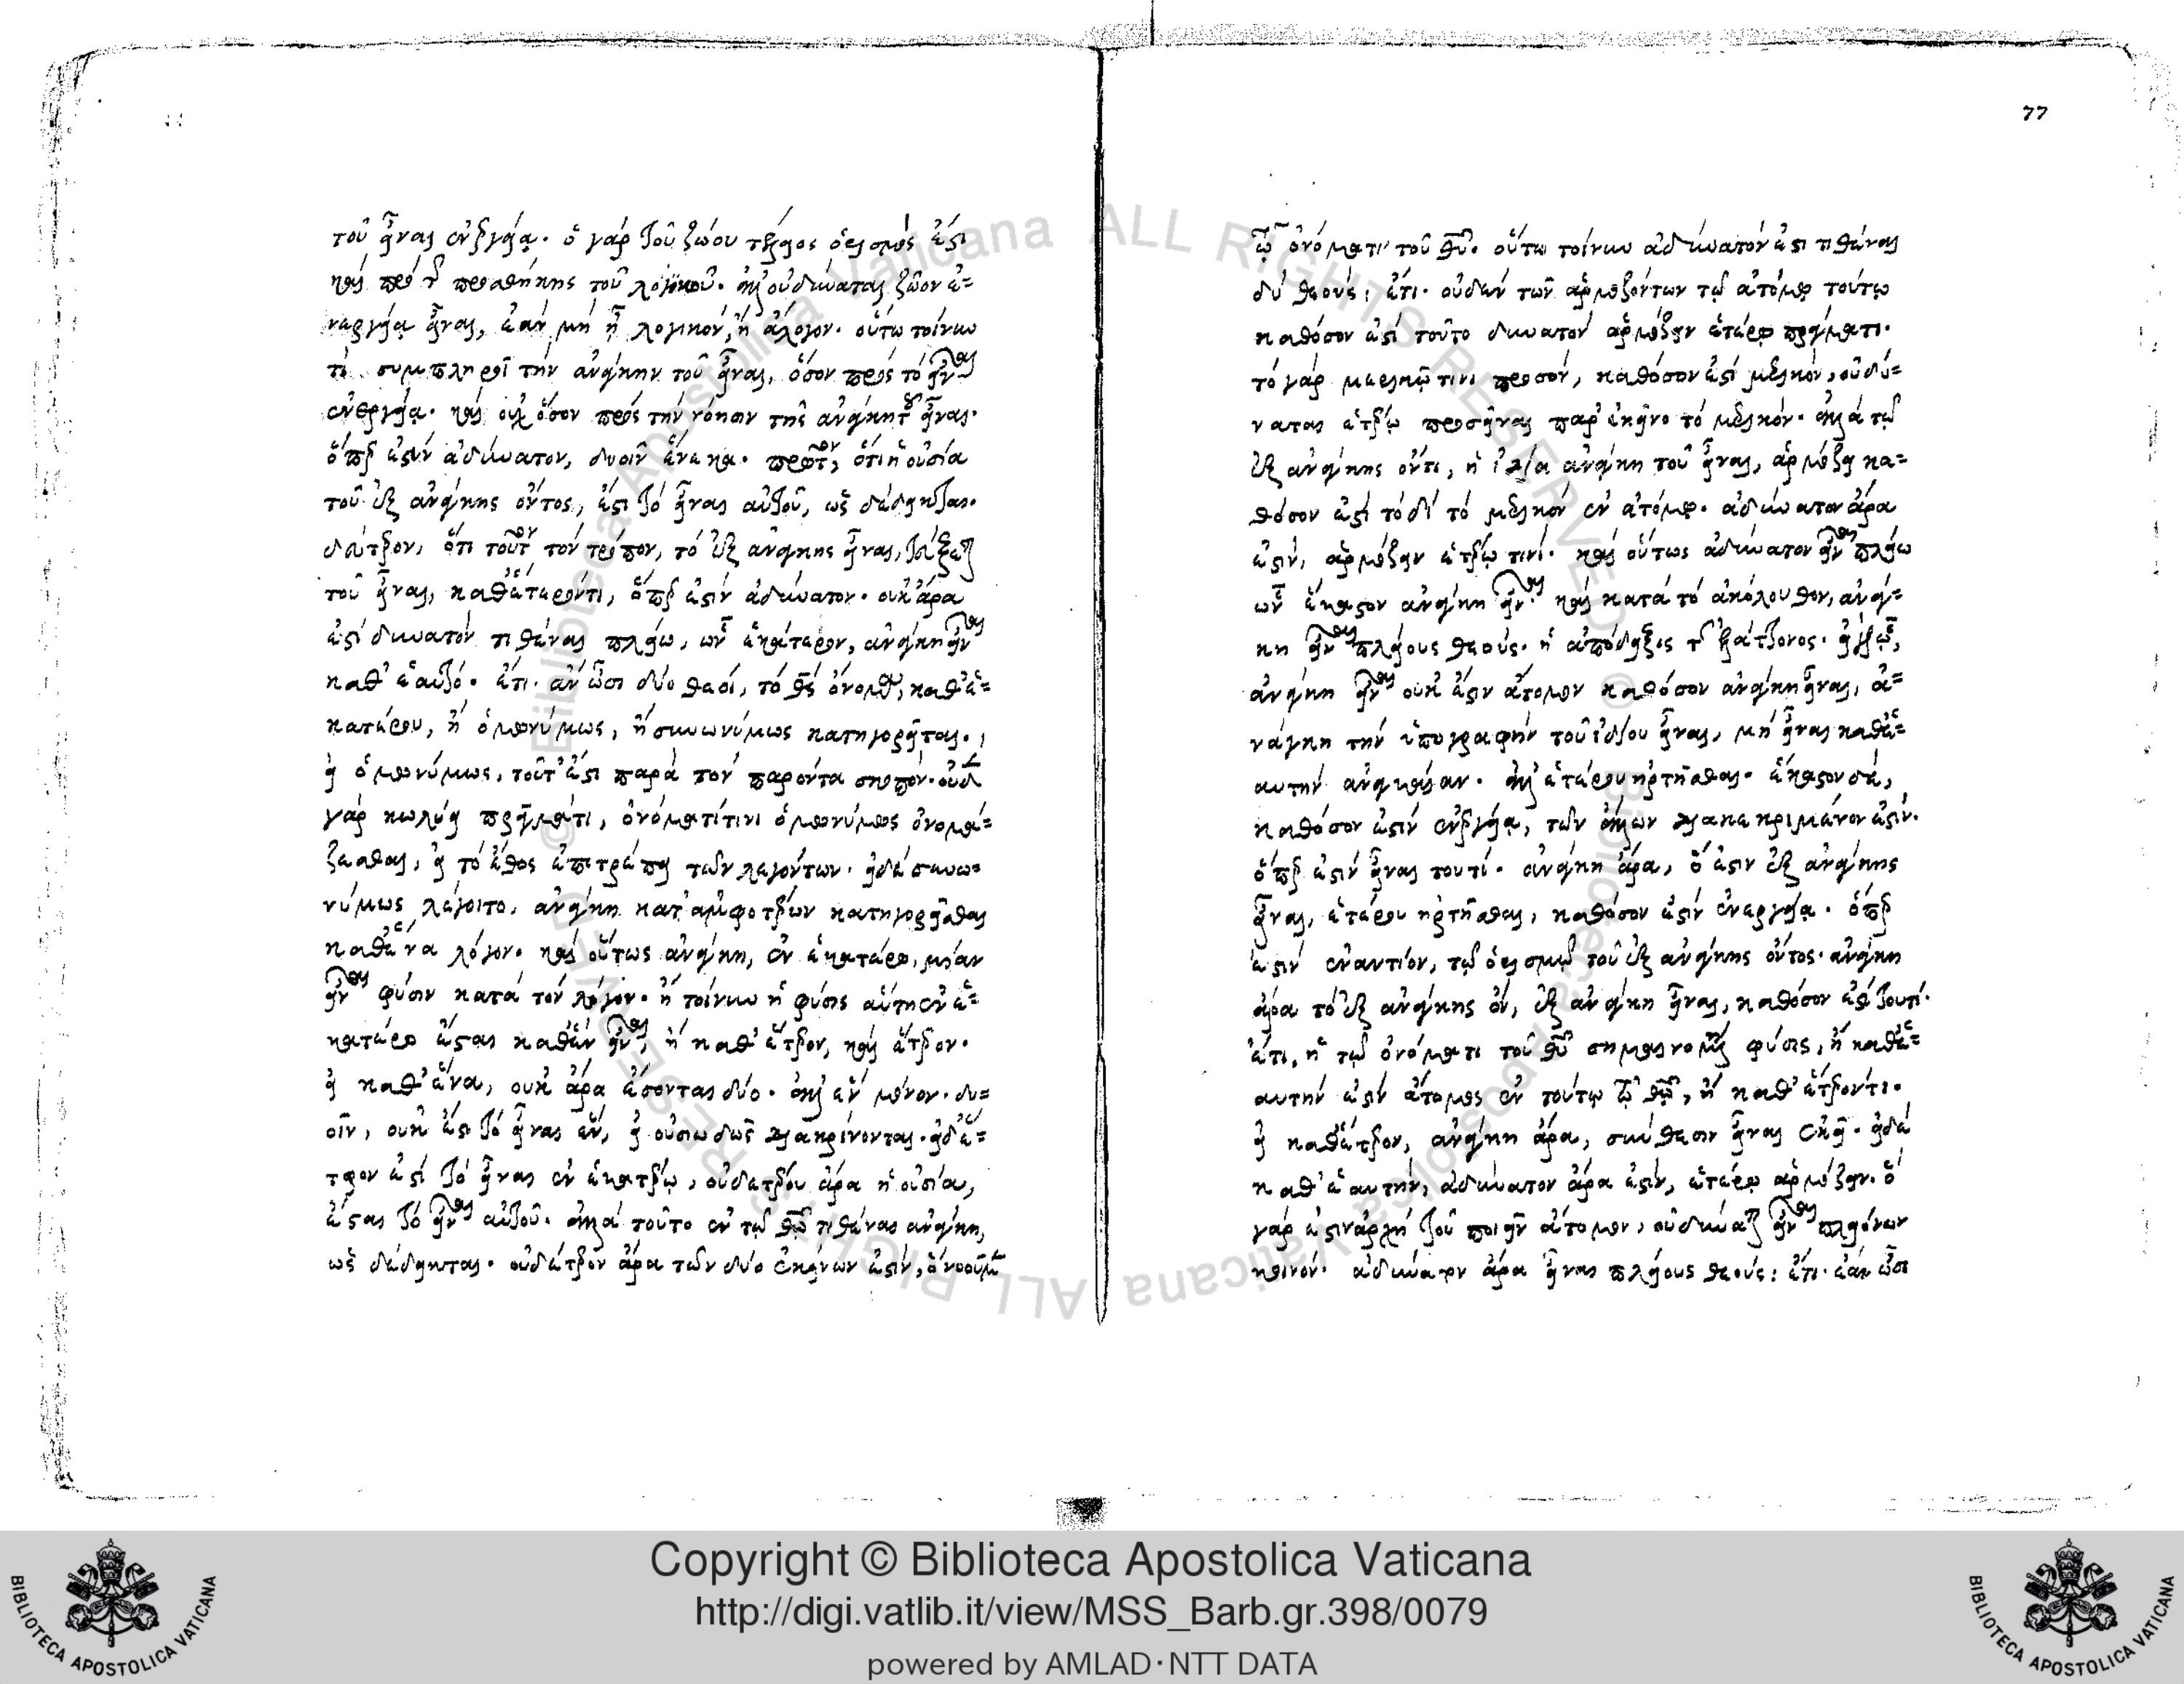 τοῦ εἶναι ἐνεργείᾳ. ὁ γὰρ τοῦ ζώου τέλειος ὁρισμός ἐστι
καὶ πρὸ τῆς προσθήκης τοῦ λογικοῦ. ἀλλ' οὐ δύναται ζῶον ἐ=
νεργείᾳ εἶναι, ἐὰν μὴ ᾖ λογικὸν, ἢ ἄλογον. οὕτω τοίνυν
τὶ συμπληροῖ τὴν ἀνάγκην τοῦ εἶναι, ὅσον πρὸς τὸ εἶναι
ἐνεργείᾳ. καὶ οὐχ ὅσον πρὸς τὴν νόησιν τῆς ἀνάγκης τοῦ εἶναι.
ὅπερ ἐστὶν ἀδύνατον, δυοῖν ἕνεκα. πρῶτον, ὅτι ἡ οὐσία
τοῦ ἐξ ἀνάγκης ὄντος, ἐστὶ τὸ εἶναι αὐτοῦ, ὡς δέδεικται.
δεύτερον, ὅτι τοῦτον τὸν τρόπον, τὸ ἐξ ἀνάγκης εἶναι,
τοῦ εἶναι, καθ' ἕτερόν τι, ὅπερ ἐστὶν ἀδύνατον. οὐκ ἄρα
ἐστὶ δυνατὸν τιθέναι πλείω, ὧν ἑκάτερον, ἀνάγκη εἶναι
καθ' ἑαυτό. ἔτι. ἂν ὦσι δύο θεοί, τὸ θς ὄνομα, καθ' ἑ=
κατέρου, ἢ ὁμωνύμως, ἢ συνωνύμως κατηγορεῖται.
εἰ ὁμωνύμως, τοῦτ' ἔστι παρὰ τὸν παρόντα σκοπόν. οὐδὲν
γὰρ κωλύει πράγματι, ὀνόματί τινι ὁμωνύμως ὀνομά=
ζεσθαι, εἰ τὸ ἔθος ἐπιτρέπει τῶν λεγόντων. εἰ δὲ συνω=
νύμως λέγοιτο, ἀνάγκη κατ' ἀμφοτέρων κατηγορεῖσθαι
καθ' ἕνα λόγον. καὶ οὕτως ἀνάγκη, ἐν ἑκατέρῳ, μίαν
εἶναι φύσιν κατὰ τὸν λόγον. ἢ τοίνυν ἡ φύσις αὕτη ἐν ἑ=
κατέρῳ ἔσται καθ' ἓν εἶναι, ἢ καθ' ἕτερον, καὶ ἕτερον.
εἰ καθ' ἕνα, οὐκ ἄρα ἔσονται δύο. ἀλλ' ἓν μόνον. δυ=
οῖν, οὐκ ἔστι τὸ εἶναι ἓν, εἰ οὐσιωδῶς διακρίνονται. εἰ δ' ἕ=
τερον ἐστὶ τὸ εἶναι ἐν ἑκατέρῳ, οὐδετέρου ἄρα ἡ οὐσία,
ἔσται τὸ εἶναι αὐτοῦ. ἀλλὰ τοῦτο ἐν τῷ θῷ τιθέναι ἀνάγκη,
ὡς δέδεικται. οὐδέτερον ἄρα τῶν δύο ἐκείνων ἐστὶν, ὃ νοοῦμεν
77
τῷ ὀνόματι τοῦ θῦ. οὕτω τοίνυν ἀδύνατόν ἐστι τιθέναι
δύ θεούς: ἔτι. οὐδὲν τῶν ἁρμοζόντων τῷ ἀτόμῳ τούτῳ
καθόσον ἐστὶ τοῦτο δυνατὸν ἁρμόζειν ἑτέρῳ πράγματι.
τὸ γὰρ μερικῷ τινι προσὸν, καθόσον ἐστὶ μερικὸν, οὐ δύ=
ναται ἑτέρῳ προσεῖναι παρ' ἐκεῖνο τὸ μερικόν. ἀλλὰ τῷ
ἐξ ἀνάγκης ὄντι, ἡ ἰδία ἀνάγκη τοῦ εἶναι, ἁρμόζει κα=
θόσον ἐστὶ τὸ δὶ τὸ μερικὸν ἐν ἀτόμῳ. ἀδύνατον ἄρα
ἐστὶν, ἁρμόζειν ἑτέρῳ τινί. καὶ οὕτως ἀδύνατον εἶναι πλείω
ὧν ἕκαστον ἀνάγκη εἶναι. καὶ κατὰ τὸ ἀκόλουθον, ἀνάγ=
κη εἶναι πλείους θεούς. ἡ ἀπόδειξις τοῦ ἐλάττονος.
ἀνάγκη εἶναι οὐκ ἔστιν ἄτομον καθόσον ἀνάγκη εἶναι, ἀ=
νάγκη τὴν ὑπογραφὴν τοῦ ἰδίου εἶναι, μὴ εἶναι καθ' ἑ=
αυτὴν ἀναγκαίαν. ἀλλ' ἑτέρου ἠρτῆσθαι. ἕκαστον δὲ,
καθόσον ἐστὶν ἐνεργείᾳ, τῶν ἄλλων διακεκριμένον ἐστίν.
ὅπερ ἐστὶν εἶναι τουτί. ἀνάγκη ἄρα, ὅ ἐστιν ἐξ ἀνάγκης
εἶναι, ἑτέρου ἠρτῆσθαι, καθόσον ἐστὶν ἐνεργείᾳ. ὅπερ
ἐστὶν ἐναντίον, τῷ ὁρισμῷ τοῦ ἐξ ἀνάγκης ὄντος. ἀνάγκη
ἄρα τὸ ἐξ ἀνάγκης ὂν, ἐξ ἀνάγκη εἶναι, καθόσον ἐστὶ τουτί.
ἔτι. ἡ τῷ ὀνόματι τοῦ θῦ σημαινομένη φύσις, ἢ καθ' ἑ=
αυτὴν ἐστὶν ἄτομος ἐν τούτῳ τῷ θῷ, ἢ καθ' ἕτερόν τι.
εἰ καθ' ἕτερον, ἀνάγκη ἄρα, σύνθεσιν εἶναι ἐκεῖ. εἰ δὲ
καθ' ἑαυτὴν, ἀδύνατον ἄρα ἐστὶν, ἑτέρῳ ἁρμόζειν. ὃ
γάρ ἐστιν ἀρχὴ τοῦ ποιεῖν ἄτομον, οὐ δύναται εἶναι πλειόνων
κοινόν. ἀδύνατον ἄρα εἶναι πλείους θεούς: ἔτι. ἐὰν ὦσι
Copyright © Biblioteca Apostolica Vaticana
http://digi.vatlib.it/view/MSS_Barb.gr.398/0079
powered by AMLAD·NTT DATA